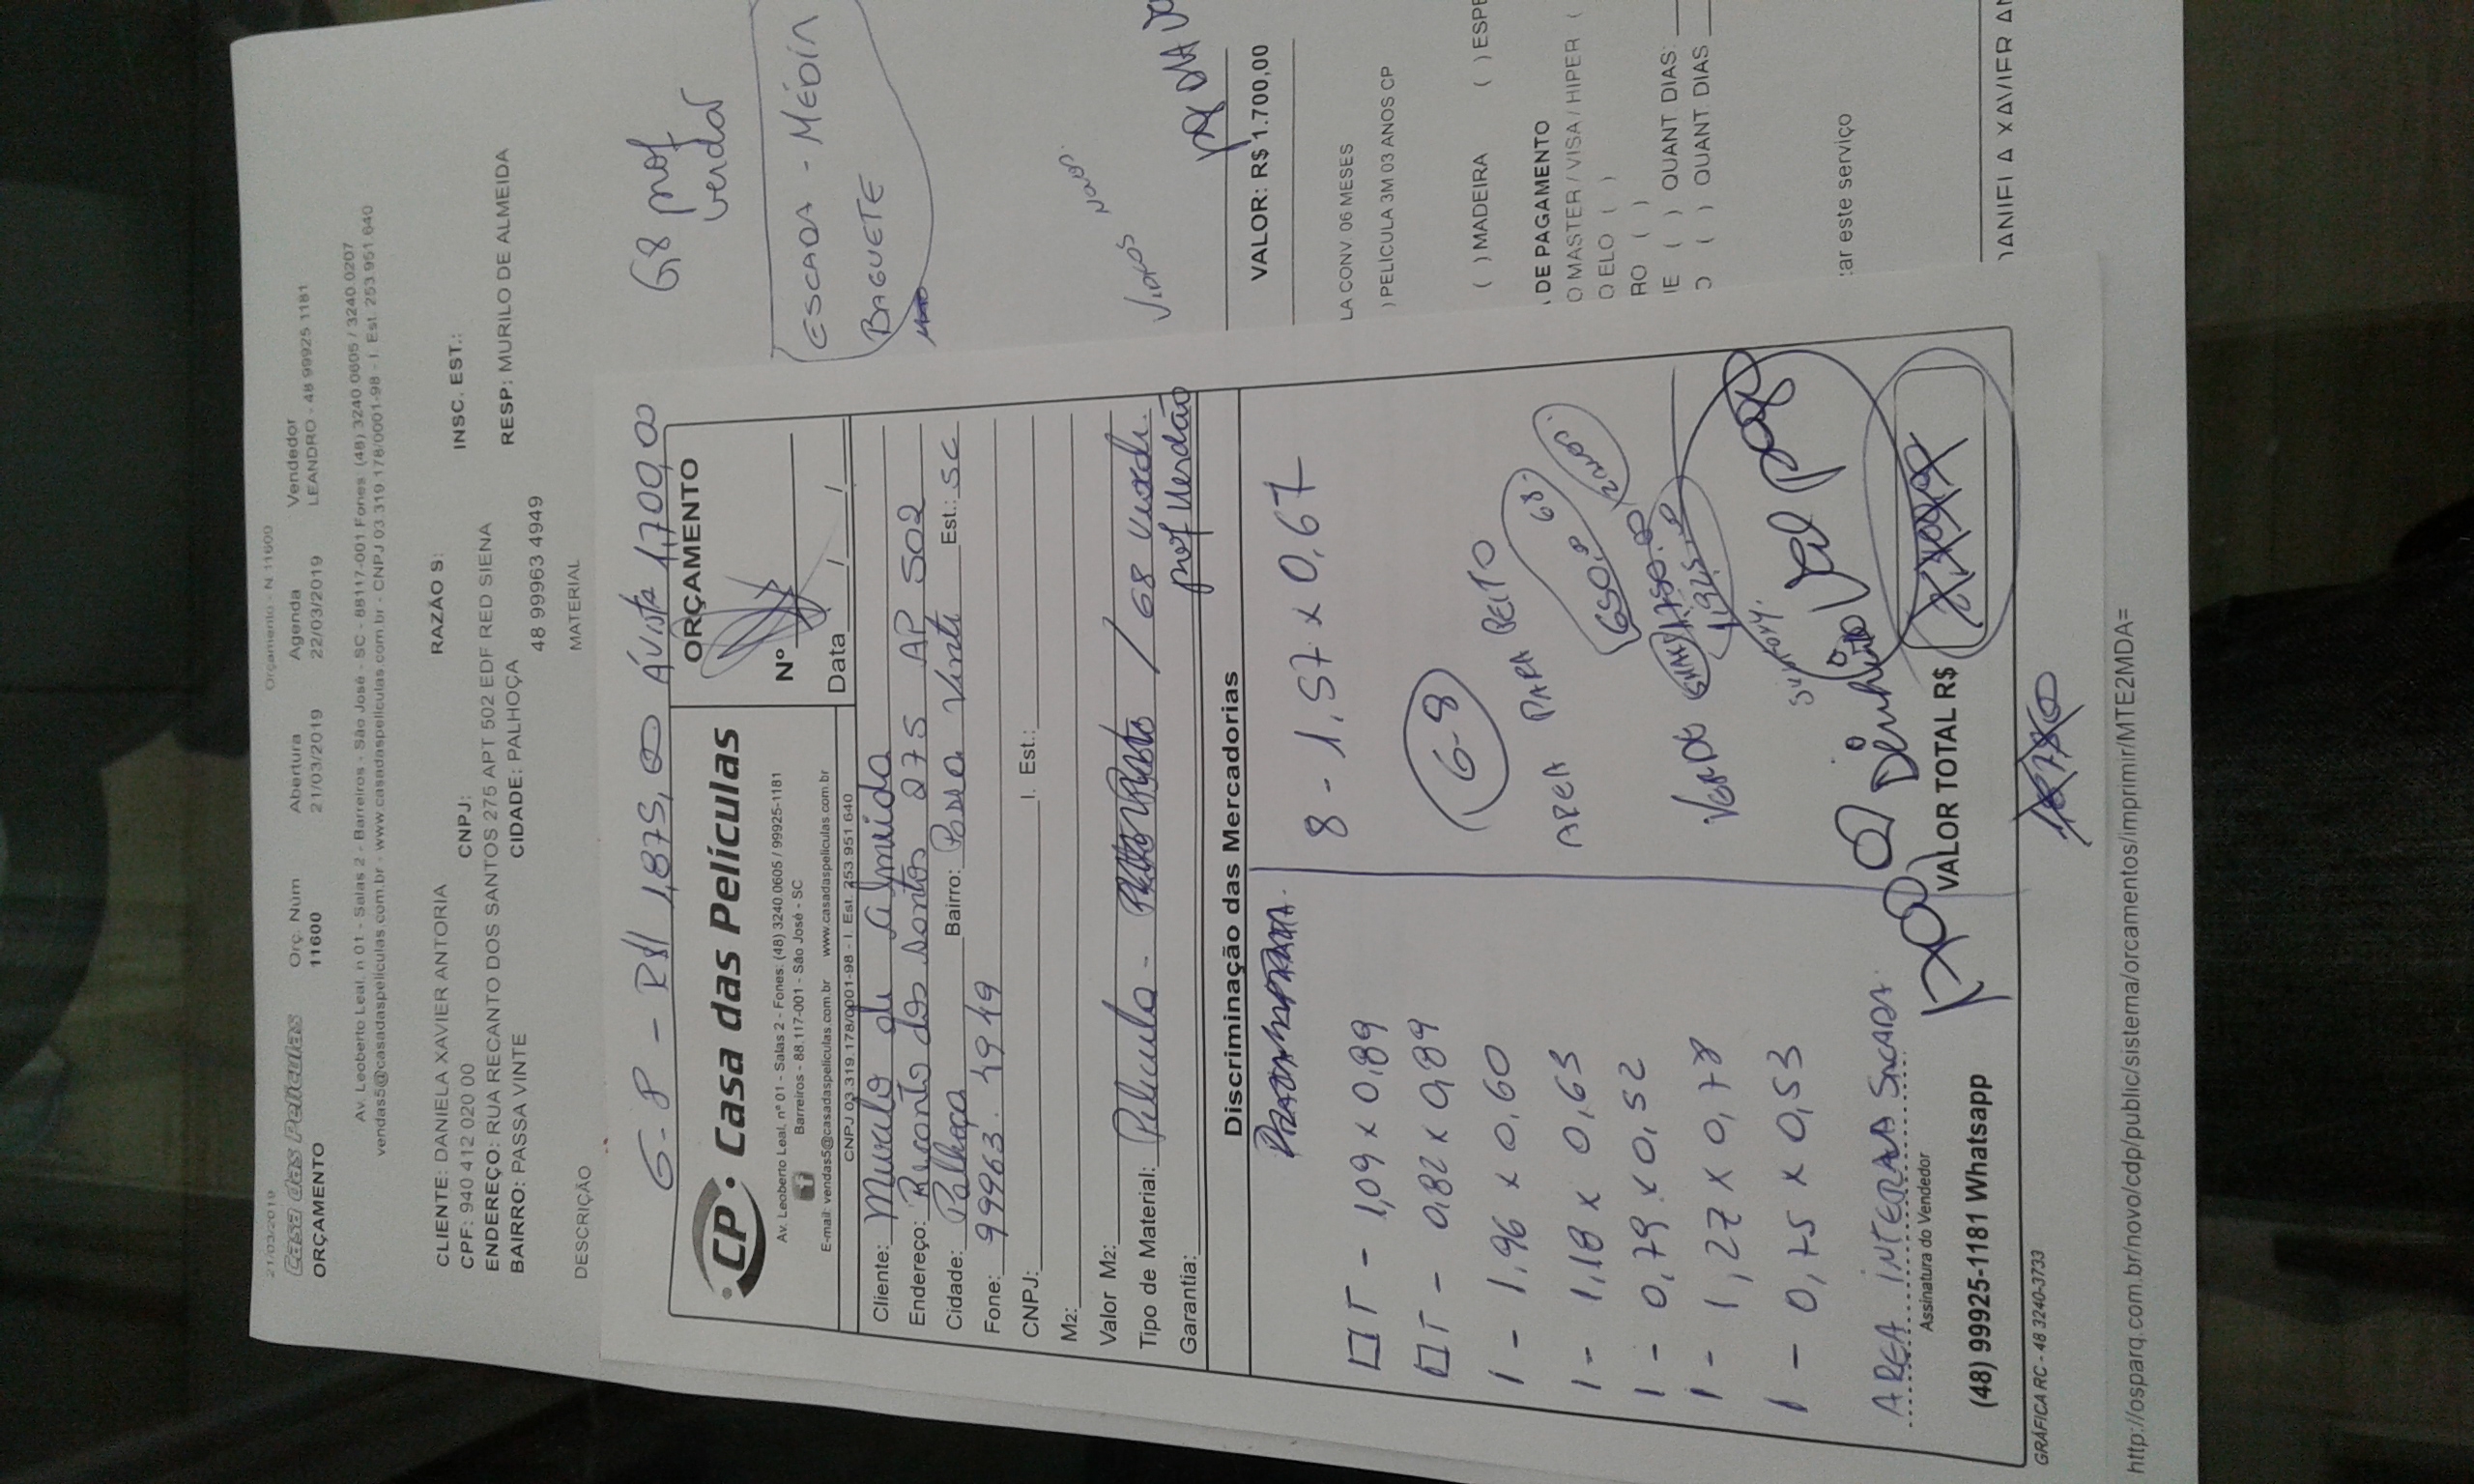 21/03/2019
Orçamento - N 11600
Casa das Películas
ORÇAMENTO
Orç. Núm
11600
Abertura
21/03/2019
Agenda
22/03/2019
Vendedor
LEANDRO - 48 99925 1181
Av. Leoberto Leal, n 01 - Salas 2 - Barreiros - São José - SC - 88117-001 Fones: (48) 3240 0605 / 3240 0207
vendas5@casadaspeliculas.com.br - www.casadaspeliculas.com.br - CNPJ 03.319.178/0001-98 - I. Est. 253 951 640
CLIENTE: DANIELA XAVIER ANTORIA
RAZÃO S:
INSC. EST.:
CPF: 940 412 020 00
CNPJ:
ENDEREÇO: RUA RECANTO DOS SANTOS 275 APT 502 EDF RED SIENA
RESP: MURILO DE ALMEIDA
BAIRRO: PASSA VINTE
CIDADE: PALHOÇA
48 99963 4949
DESCRIÇÃO
MATERIAL
G8 prof
verdão
ESCADA - MÉDIA
BAGUETE
VIDROS NOVOS
VALOR: R$ 1.700,00
LA CONV 06 MESES
) PELICULA 3M 03 ANOS CP
( ) MADEIRA ( ) ESPE
DE PAGAMENTO
O MASTER / VISA / HIPER (
O ELO ( )
RO ( )
IE ( ) QUANT DIAS:
O ( ) QUANT. DIAS
ar este serviço
DANIELA XAVIER AN
G-8 - R$ 1,875,00 Ávista 1,700,00
CP. Casa das Películas
ORÇAMENTO
Nº
Data / /
Av. Leoberto Leal, nº 01 - Salas 2 - Fones: (48) 3240.0605 / 99925-1181
Barreiros - 88.117-001 - São José - SC
E-mail: vendas5@casadaspeliculas.com.br www.casadaspeliculas.com.br
CNPJ 03.319.178/0001-98 - I. Est. 253.951.640
Cliente: Murilo de Almeida
Endereço: Riconto dos Santos 275 AP 502
Cidade: Palhoça Bairro: Passa Vinte Est.: SC
Fone: 99963.4949
CNPJ: I. Est.:
M2:
Valor M2:
Tipo de Material: Película - / G8 Verde
Garantia: prof Verdão
Discriminação das Mercadorias
□T - 1,09 x 0,89
□T - 0,82 x 0,89
1 - 1,96 x 0,60
1 - 1,18 x 0,63
1 - 0,79 x 0,52
1 - 1,27 x 0,78
1 - 0,75 x 0,53
AREA INTERNA SACADA
8 - 1,57 x 0,67
G-8
AREA PARA PEITO
650,0 G8
VERDE
Dinheiro
Assinatura do Vendedor
VALOR TOTAL R$
(48) 99925-1181 Whatsapp
GRÁFICA RC - 48 3240-3733
http://osparq.com.br/novo/cdp/public/sistema/orcamentos/imprimir/MTE2MDA=